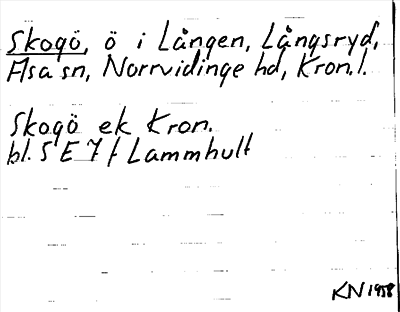 Skogö, ö i Lången, Långsryd,
Asa sn, Norrvidinge hd, Kron. l.
Skogö ek Kron.
bl. 5 E 7 f Lammhult
KN 1958